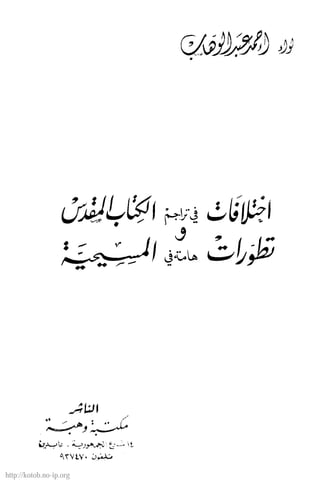 لواء أحمد عبد الوهاب
اختلافات في تراجم الكتاب المقدس
و
تطورات هامة في المسيحية
الناشر
مكتبة وهبة
١٤ شارع الجمهورية - عابدين
تليفون ٩٣٧٤٧٠
http://kotob.no-ip.org